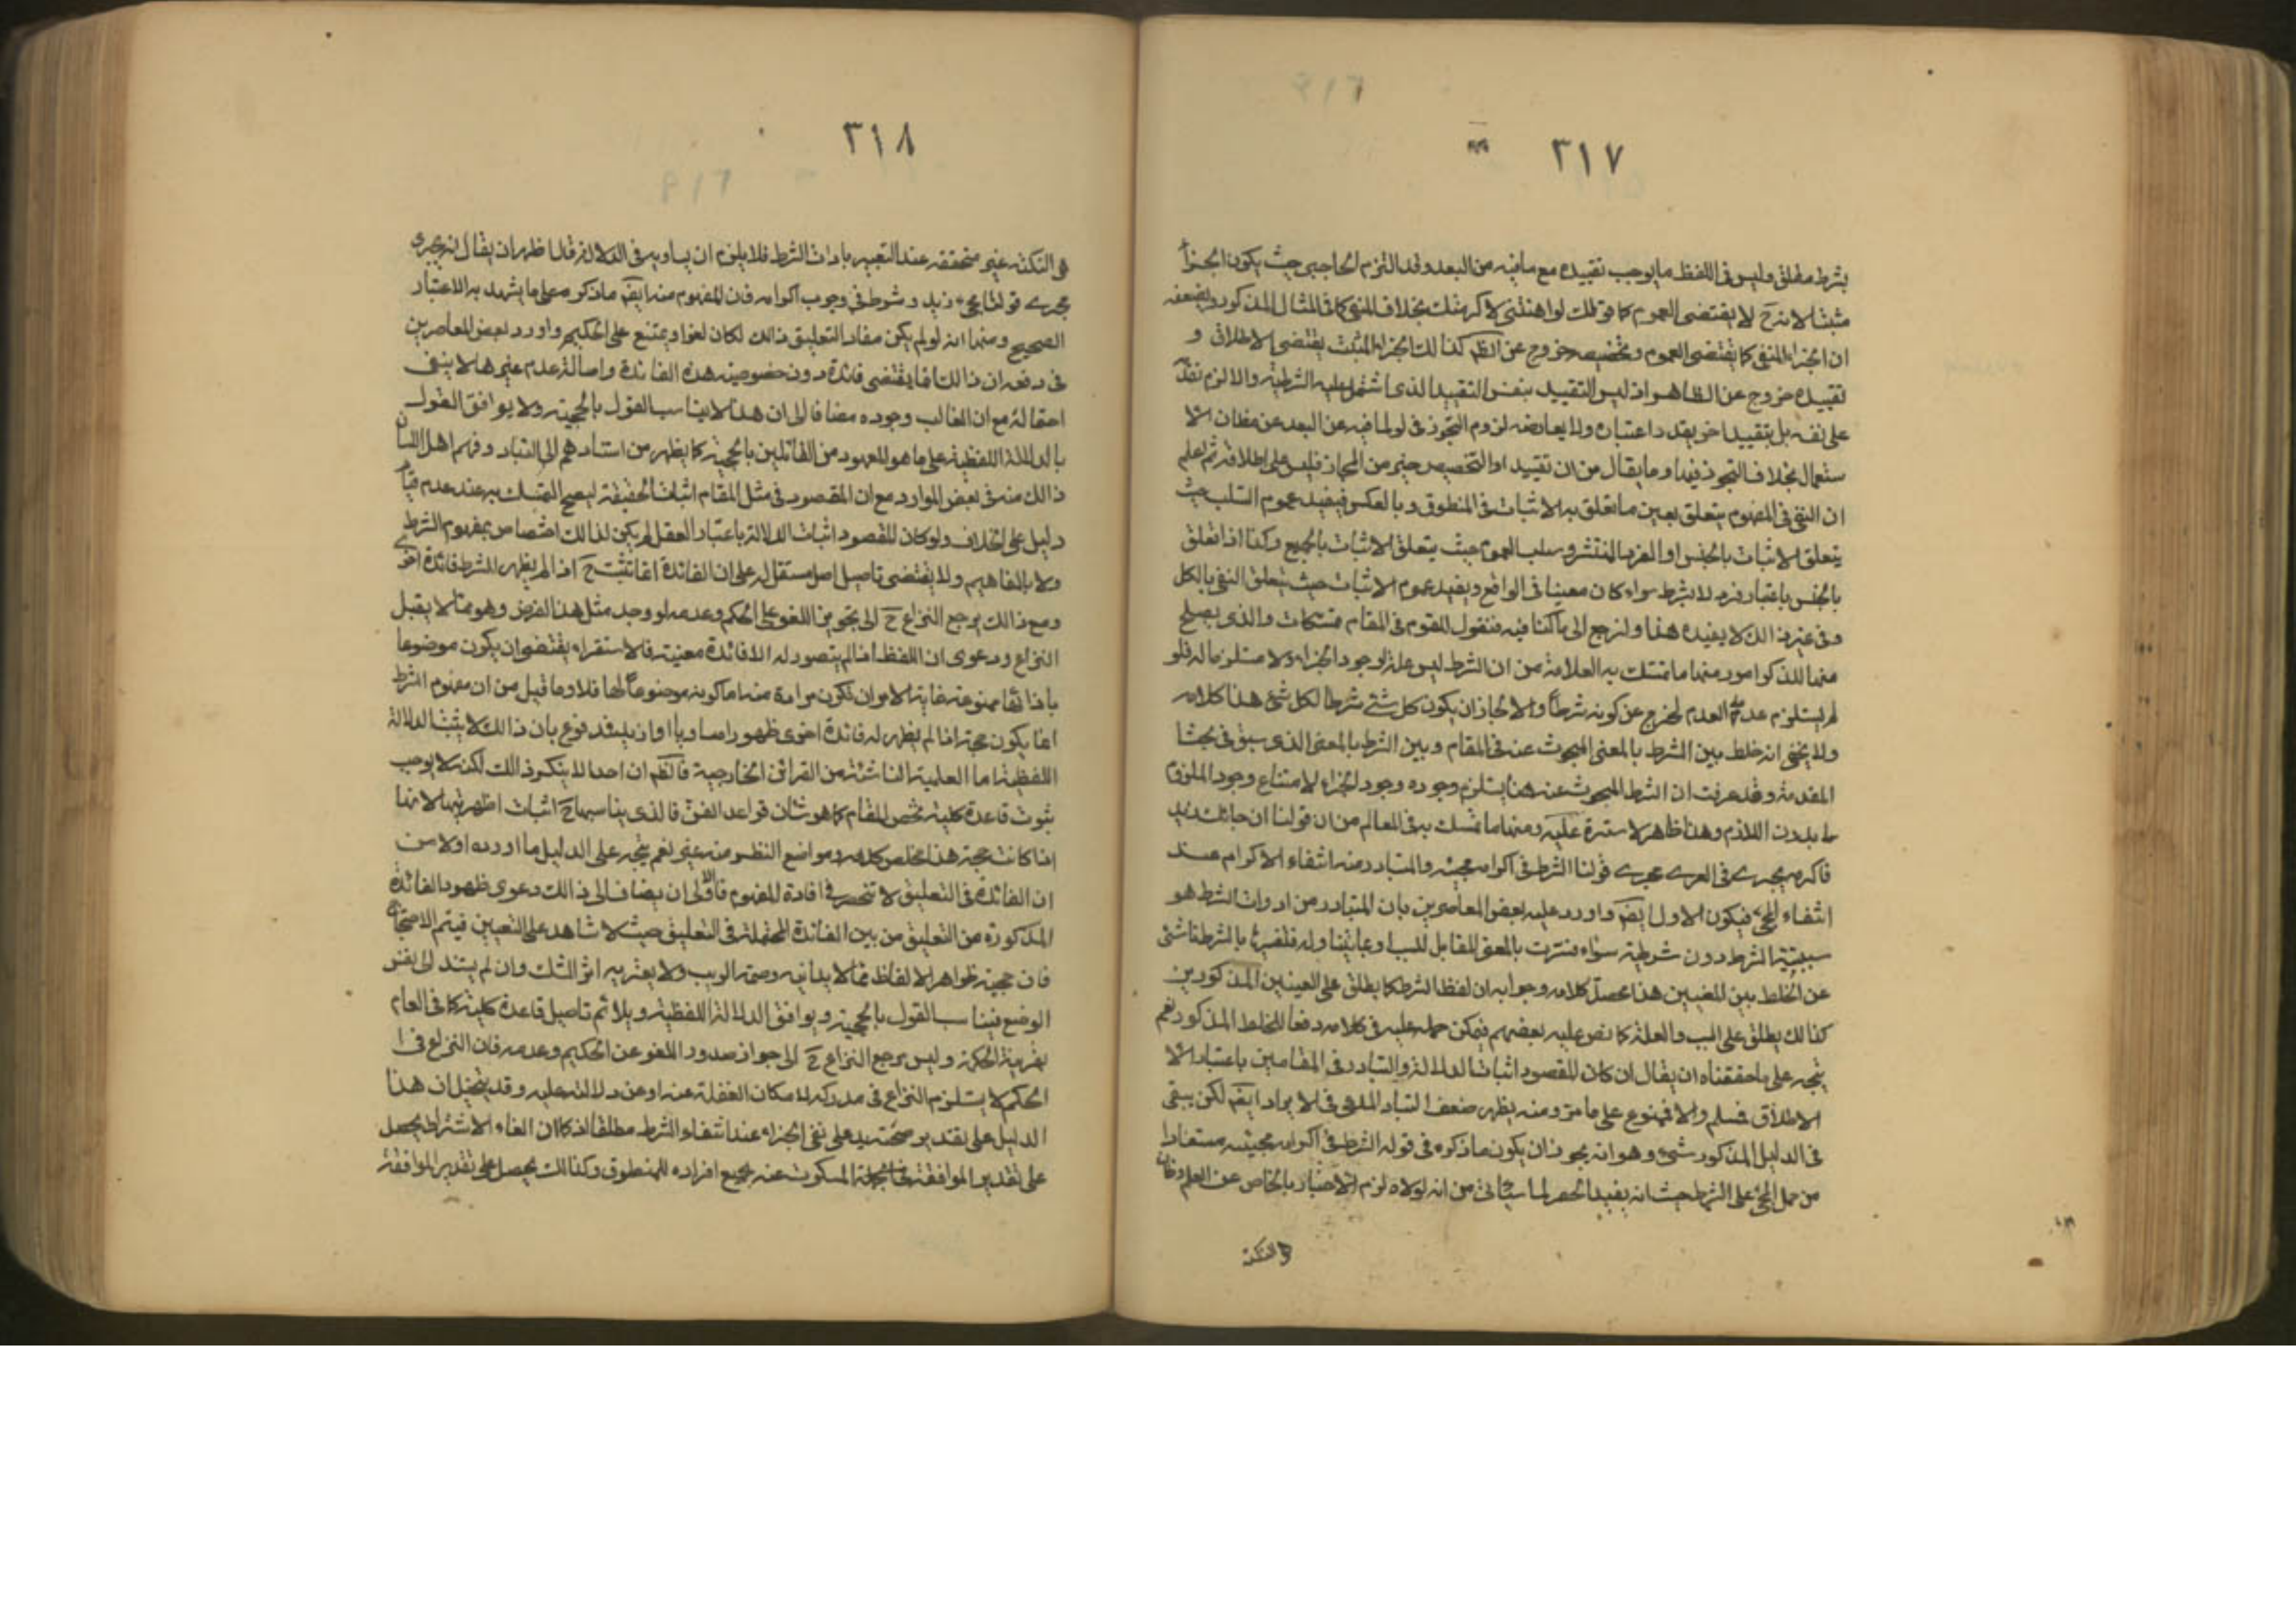 ٣١٧
بشرط مغلق وليس فى اللفظ ما يوجب تقييده مع ما فيه من البعد وقد التزم الحاجبى حيث يكون الجزاء
مثبتا لانه ح لا يقتضى العموم كما فى قولك لو اهنتنى لا كرمتك بخلاف المنفى كما فى المثال المذكور ويضعفه
ان الجزاء المنفى كما يقتضى العموم وتخصيصه خروج عن الظ كذالك الجزاء المثبت يقتضى الاطلاق و
تقييده خروج عن الظاهر اذ ليس التقييد بنفس التقييد الذى اشتمل عليه الشرطية والا لزم تقدم
على نفسه بل بتقييد اخر بعد اعتباره ولا يعارضه لزوم التجوز فى لو لما فيه من البعد عن مظان الا
ستعمال بخلاف التجوز فيها وما يقال من ان تقييد او التخصيص خير من المجاز فليس على اطلاقه ثم اعلم
ان النفى فى المفهوم يتعلق بعين ما تعلق به الاثبات فى المنطوق وبالعكس فيفيد عموم السلب حيث
يتعلق الاثبات بالجنس او الفرد المنتشر وسلب العموم حيث يتعلق الاثبات بالجميع وكذا اذا تعلق
بالجنس باعتبار فرد لا بشرط سواء كان معينا فى الواقع ويفيد عموم الاثبات حيث يتعلق النفى بالكل
وفى غير ذالك لا يفيده هذا ولنرجع الى ما كنا فيه فنقول للقوم فى المقام متمسكات والذى يصلح
منها للذكر امور منها ما تمسك به العلامة من ان الشرط ليس علة لوجود الجزاء ولا مستلزما له فلو
لم يستلزم عدمه العدم لخرج عن كونه شرطاً والا لجاز ان يكون كل شئ شرطا لكل شئ هذا كلامه
ولا يخفى انه خلط بين الشرط بالمعنى المبحوث عنه فى المقام وبين الشرط بالمعنى الذى سبق فى بحث
المقدمة وقد عرفت ان الشرط المبحوث عنه هنا يستلزم وجوده وجود الجزاء لامتناع وجود الملزوم
بدون اللازم وهذا ظاهر لا سترة عليه ومنها ما تمسك به فى المعالم من ان قولنا ان جائك زيد
فاكرمه يجرى فى العرف مجرى قولنا الشرط فى اكرامه مجيئه والمتبادر منه انتفاء الاكرام عند
انتفاء المجئ فيكون الاول ايض واورد عليه بعض المعاصرين بان المتبادر من ادوات الشرط هو
سببية الشرط دون شرطية سواء فسرت بالمعنى المقابل للسبب او عا
عن الخلط بين المعنيين هذا محصل كلامه وجوابه ان لفظ الشرط كما يطلق على المعنيين المذكورين
كذالك يطلق على السبب والعلة كما نص عليه بعضهم فيمكن حمله عليه فى كلامه دفعا للخلط المذكور نعم
يتجه على ما حققناه ان يقال ان كان المقصود اثبات الدلالة والتبادر فى المقامين باعتبار الا
الاطلاق فمسلم والا فممنوع على ما مر ومنه يظهر ضعف التبادر المدعى فى الايراد ايض لكن يبقى
فى الدليل المذكور شئ وهو انه يجوز ان يكون ما ذكره فى قوله الشرط فى اكرامه مجيئه مستفادا
من حمل المجئ على الشرط حيث انه يفيد الحصر لما سيأتى من انه لولاه لزم الاخبار بالخاص عن العام وهذه
النكتة
٣١٨
النكتة غير متحققة عند التعبير بادات الشرط فلا يلزم ان يساويه فى الدلالة قلنا ظهر ان يقال انه يجرى
مجرى قولنا مجئ زيد شرط فى وجوب اكرامه فان المفهوم منه ايض ما ذكر على ما يشهد به الاعتبار
الصحيح ومنها انه لو لم يكن مفاد التعليق ذالك لكان لغوا ويمتنع على الحكيم واورد بعض المعاصرين
فى دفعه ان ذالك انما يقتضى فائدة دون خصوصية هذه الفائدة واصالة عدم غيرها لا ينفى
احتماله مع ان الغالب وجوده مضافا الى ان هذا لا يناسب القول بالحجية ولا يوافق القول
بالدلالة اللفظية على ما هو المعهود من القائلين بالحجية كما يظهر من استنادهم الى التبادر وفهم اهل اللسان
ذالك منه فى بعض الموارد مع ان المقصود فى مثل المقام اثبات الحقيقة ليصح التمسك به عند عدم قيام
دليل على الخلاف ولو كان المقصود اثبات الدلالة باعتبار العقل لم يكن لذالك اختصاص بمفهوم الشرط
ولا بالمفاهيم ولا يقتضى تاصيل اصل مستقل له على ان الفائدة انما تثبت ح اذا لم يظهر للشرط فائدة اخرى
ومع ذالك يرجع النزاع ح الى تجويز اللغو على الحكم وعدمه لو وجد مثل هذا الفرض وهو مما لا يقبل
النزاع ودعوى ان اللفظ اذا لم يتصور له الا فائدة معنية فالاستقراء يقتضى ان يكون موضوعا
بازائها ممنوعة غاية الامر ان تكون مرادة منه اما كونه موضوعاً لها فلا وما قيل من ان مفهوم الشرط
انما يكون حجة اذا لم يظهر له فائدة اخرى ظهورا مساويا او ازيد فدفوع بان ذالك لا يثبت الدلالة
اللفظية اما العلمية الناشئة من القرائن الخارجية فالظ ان احدا لا ينكر ذالك لكنه لا يوجب
ثبوت قاعدة كلية تخص المقام كما هو شان قواعد الفن فالذى يناسبها ح اثبات اظهريتها لا انها
اذا كانت حجة هذا مخلص كلامه ومواضع النظر منه غير نعم يتجه على الدليل ما اورده اولا من
ان الفائدة فى التعليق لا تنحصر فى افادة المفهوم فالاولى ان يضاف الى ذالك دعوى ظهور الفائدة
المذكورة من التعليق من بين الفائدة المحتملة فى التعليق حيث لا شاهد على التعيين فيتم الاحتجاج
فان حجية ظواهر الالفاظ مما لا يدانيه وصمة الريب ولا يعتريه اثر الشك وان لم يستند الى نفس
الوضع فيناسب القول بالحجية ويوافق الدلالة اللفظية ويلائم تاصيل قاعدة كلية كما فى العام
بقرينة الحكمة وليس يرجع النزاع ح الى جواز صدور اللغو عن الحكيم وعدمه فان النزاع فى ا
الحكم لا يستلزم النزاع فى مدركه لامكان الغفلة عنه او عن دلالته عليه وقد يتخيل ان هذا
الدليل على تقدير صحته يدل على نفى الجزاء عند انتفاء الشرط مطلقا اذ كما ان الغاء الاشتراط يحصل
على تقدير الموافقة المسكوت عنه بجميع افراده للمنطوق وكذالك يحصل على تقدير الموافقة